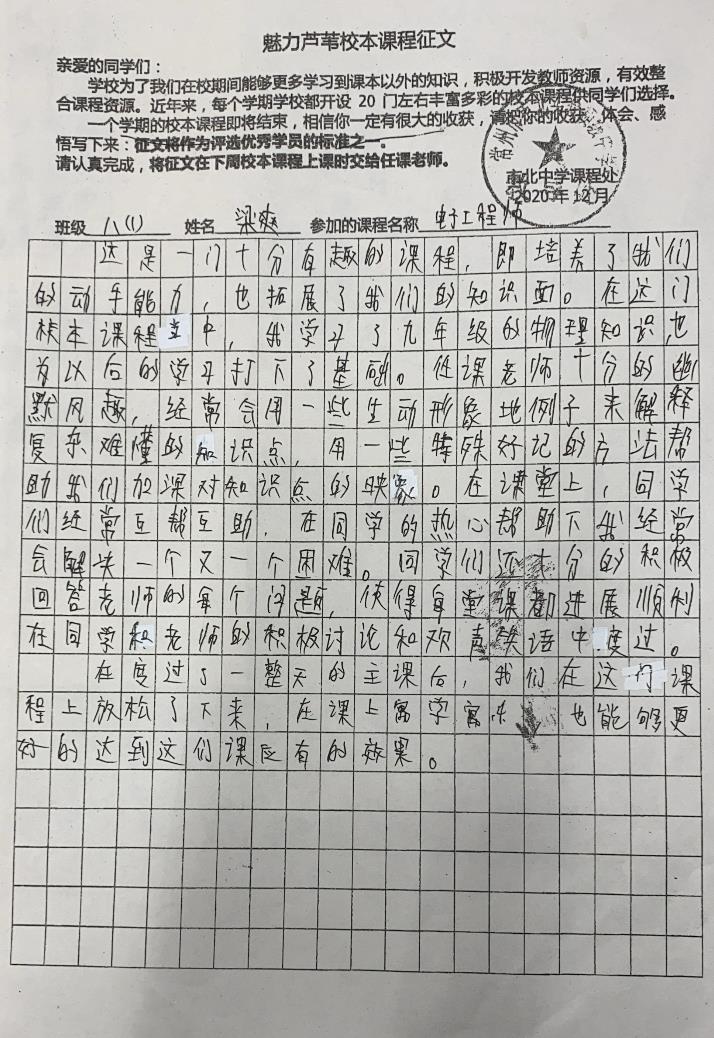 魅力芦苇校本课程征文
亲爱的同学们：
学校为了我们在校期间能够更多学习到课本以外的知识，积极开发教师资源，有效整
合课程资源。近年来，每个学期学校都开设 20 门左右丰富多彩的校本课程供同学们选择。
一个学期的校本课程即将结束，相信你一定有很大的收获，请把你的收获、体会、感
悟写下来：征文将作为评选优秀学员的标准之一。
请认真完成，将征文在下周校本课程上课时交给任课老师。
常州
市北中学课程处
2020 年 12 月
班级 八(1) 姓名 梁爽 参加的课程名称 电子工程师
这是一门十分有趣的课程，即培养了我们
的动手能力，也拓展了我们的知识面。在这门
校本课程当中，我学习了九年级的物理知识，也
为以后的学习打下了基础。任课老师十分的幽
默风趣，经常会用一些生动形象地例子来解释
复杂难懂的知识点，用一些特殊好记的方法帮
助我们加课对知识点的映象。在课堂上，同学
们经常互帮互助，在同学的热心帮助下我经常
会解决一个又一个困难。同学们还十分的积极
回答老师的每个问题，使得每堂课都进展顺利
在同学和老师的积极讨论和欢声笑语中度过。
在度过了一整天的主课后，我们在这门课
程上放松了下来，在课上寓学寓乐，也能够更
好的达到这们课应有的效果。